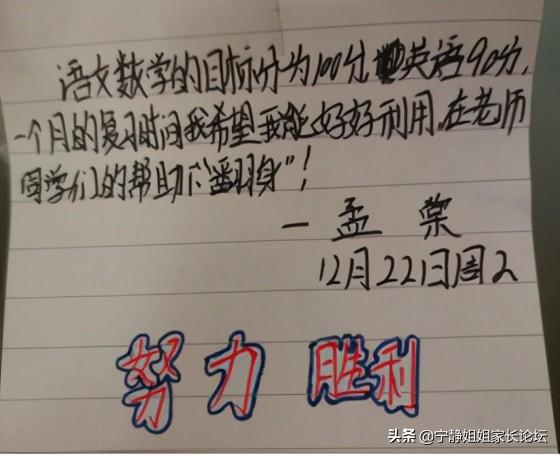 语文数学的目标分为100分,英语90分,
一个月的复习时间我希望我能好好利用,在老师
同学们的帮助下“翻身”!
— 孟棠
12月22日周2
努力 胜利
头条 @宁静姐姐家长论坛